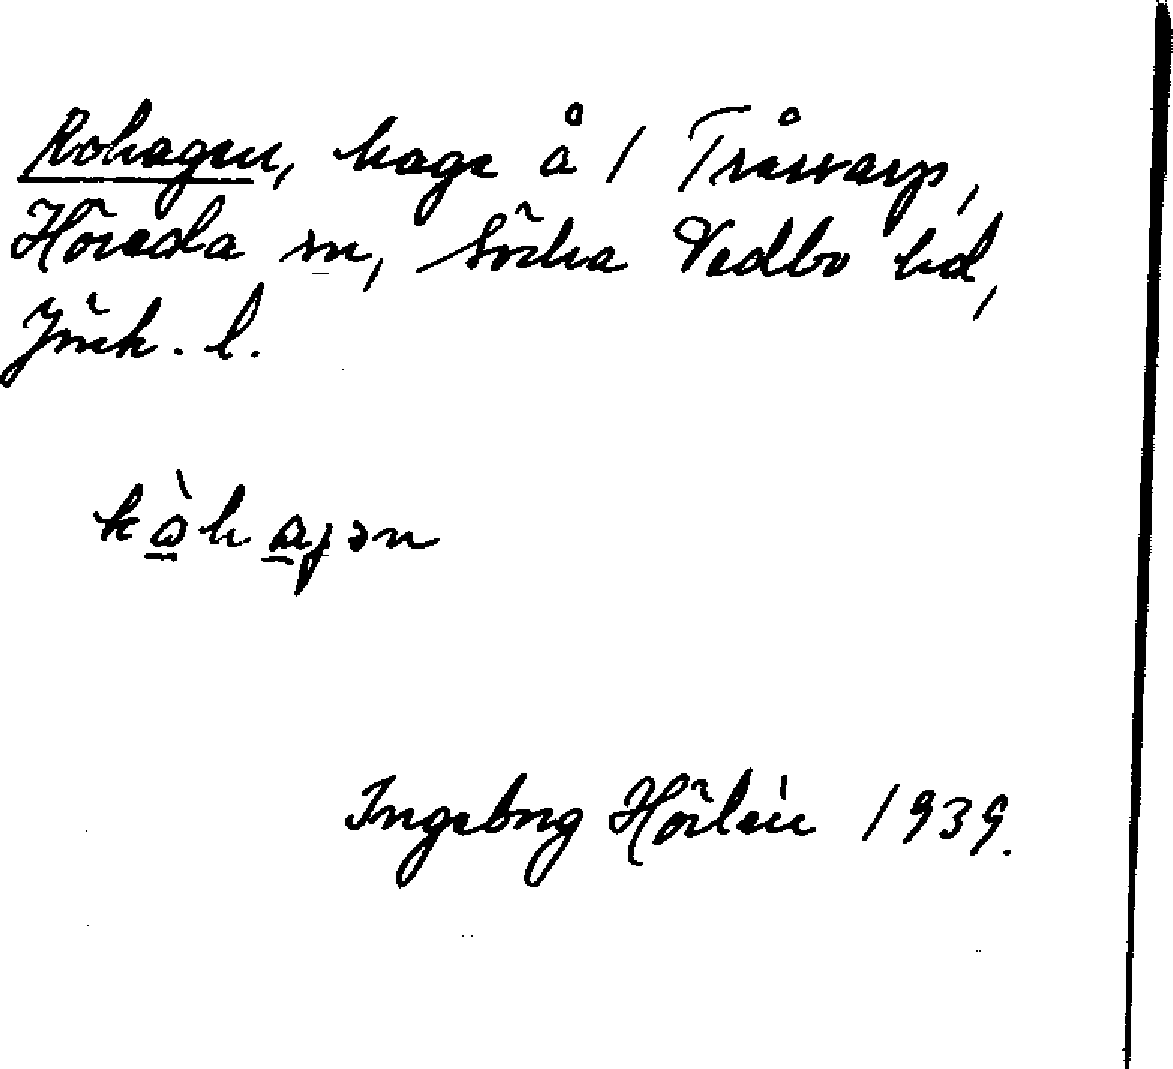 Kohagen, hage å 1 Tråsvarp,
Höreda sn, Södra Vedbo hd,
Jönk. l.
kò̲ha̲gən
Ingeborg Hörlén 1939.